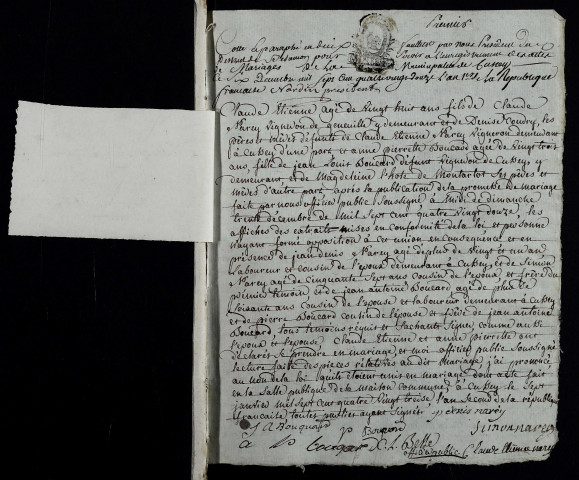 Premier
Cotte et paraphé en dix feuillets par nous President du
District de Besançon pour servir à l'enregistrement des actes
de Mariages de la Municipalité de Cussey
Dix Decembre mil sept cent quatre vingt douze l'an 1er de la République
française Nardin president
Claude Etienne agé de vingt huit ans fils de Claude
Narcy vigneron de geneuille y demeurant et de Denise Coudry, les
pères et mères défunts de Claude Etienne Narcy vigneron demeurant
à Cussey d'une part, et anne pierrette Boucard agé de vingt trois
ans, fille de jean Louis Boucard défunt vigneron de Cussey, y
demeurant, et de Magdeleine l'hote de Montarlot ses pères et
mères d'autre part, après la publication de la promesse de mariage
faite par nous officier public soussigné à midi de dimanche
trente décembre de mil sept cent quatre vingt douze, les
affiches des extraits mises en conformité de la loi et personne
n'ayant formé opposition à cet union en consequence et en
présence de jean denis Narcy agé de plus de vingt et un an
laboureur et cousin de l'epoux demeurant à Cussey, et de Simon
Narcy agé de cinquante sept ans cousin de l'epoux, et frère du
premier temoin et de jean antoine Boucard agé de plus de
soixante ans cousin de l'épouse et laboureur demeurant à Cussey
et de pierre Boucard cousin de l'epouse et frère de jean antoine
Boucard tous temoins requis et sachants signer comme aussi
l'epoux et l'epouse, Claude Etienne et anne pierrette ont
déclarés se prendre en mariage et moi officier public soussigné
lecture faite des pieces relatives au dit mariage j'ai prononcé
au nom de la loi qu'ils étoient unis en mariage dont acte fait
en la salle publique de la maison commune à Cussey le sept
janvier mil sept cent quatre vingt treise l'an second de la république
française toutes parties ayant signés
J A Bouquard p Boucard Simon narcy
officier public Claude Etienne narcy